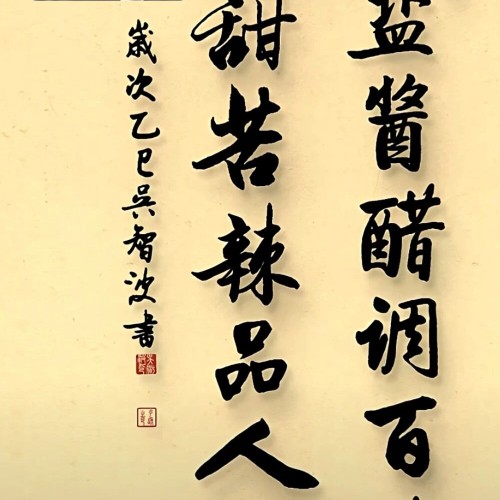 盐醬醋调百
甜苦辣品人
歲次乙巳吳智波書